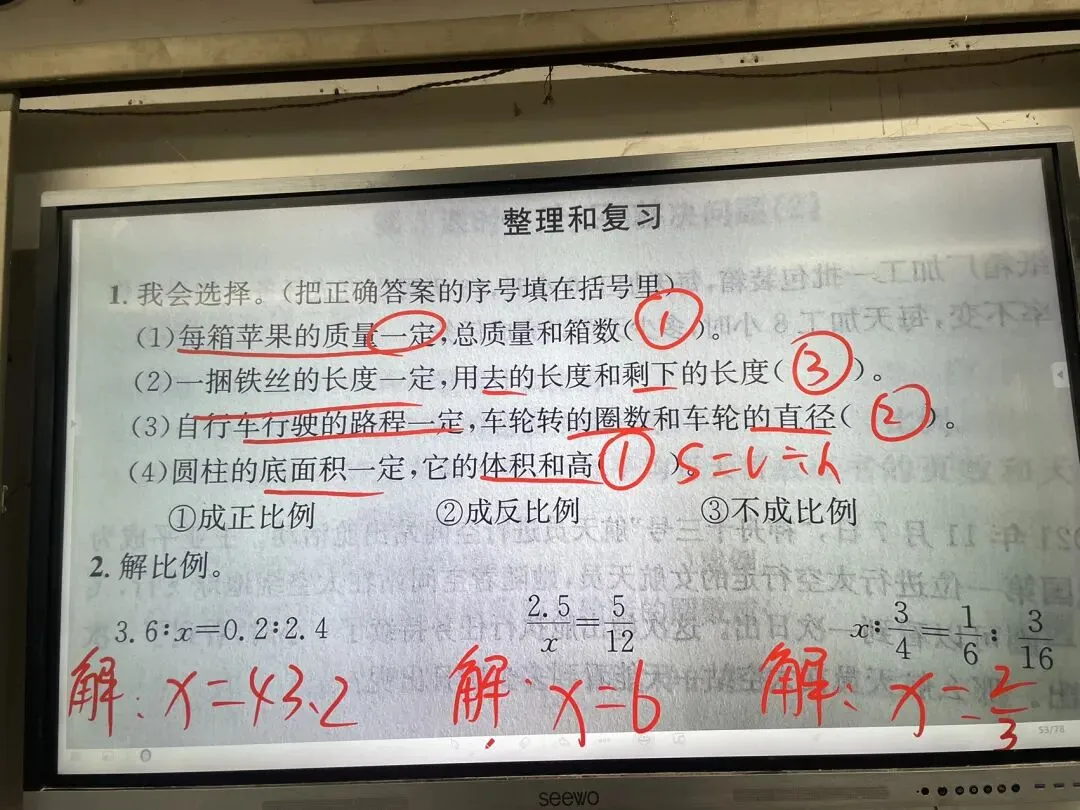 整理和复习
1. 我会选择。(把正确答案的序号填在括号里)
(1)每箱苹果的质量一定,总质量和箱数(①)。
(2)一捆铁丝的长度一定,用去的长度和剩下的长度(③)。
(3)自行车行驶的路程一定,车轮转的圈数和车轮的直径(②)。
(4)圆柱的底面积一定,它的体积和高(①)。S=V÷h
①成正比例 ②成反比例 ③不成比例
2. 解比例。
3.6:x=0.2:2.4 2.5/x=5/12 x:3/4=1/6:3/16
解:x=43.2 解:x=6 解:x=2/3
53/78
seewo